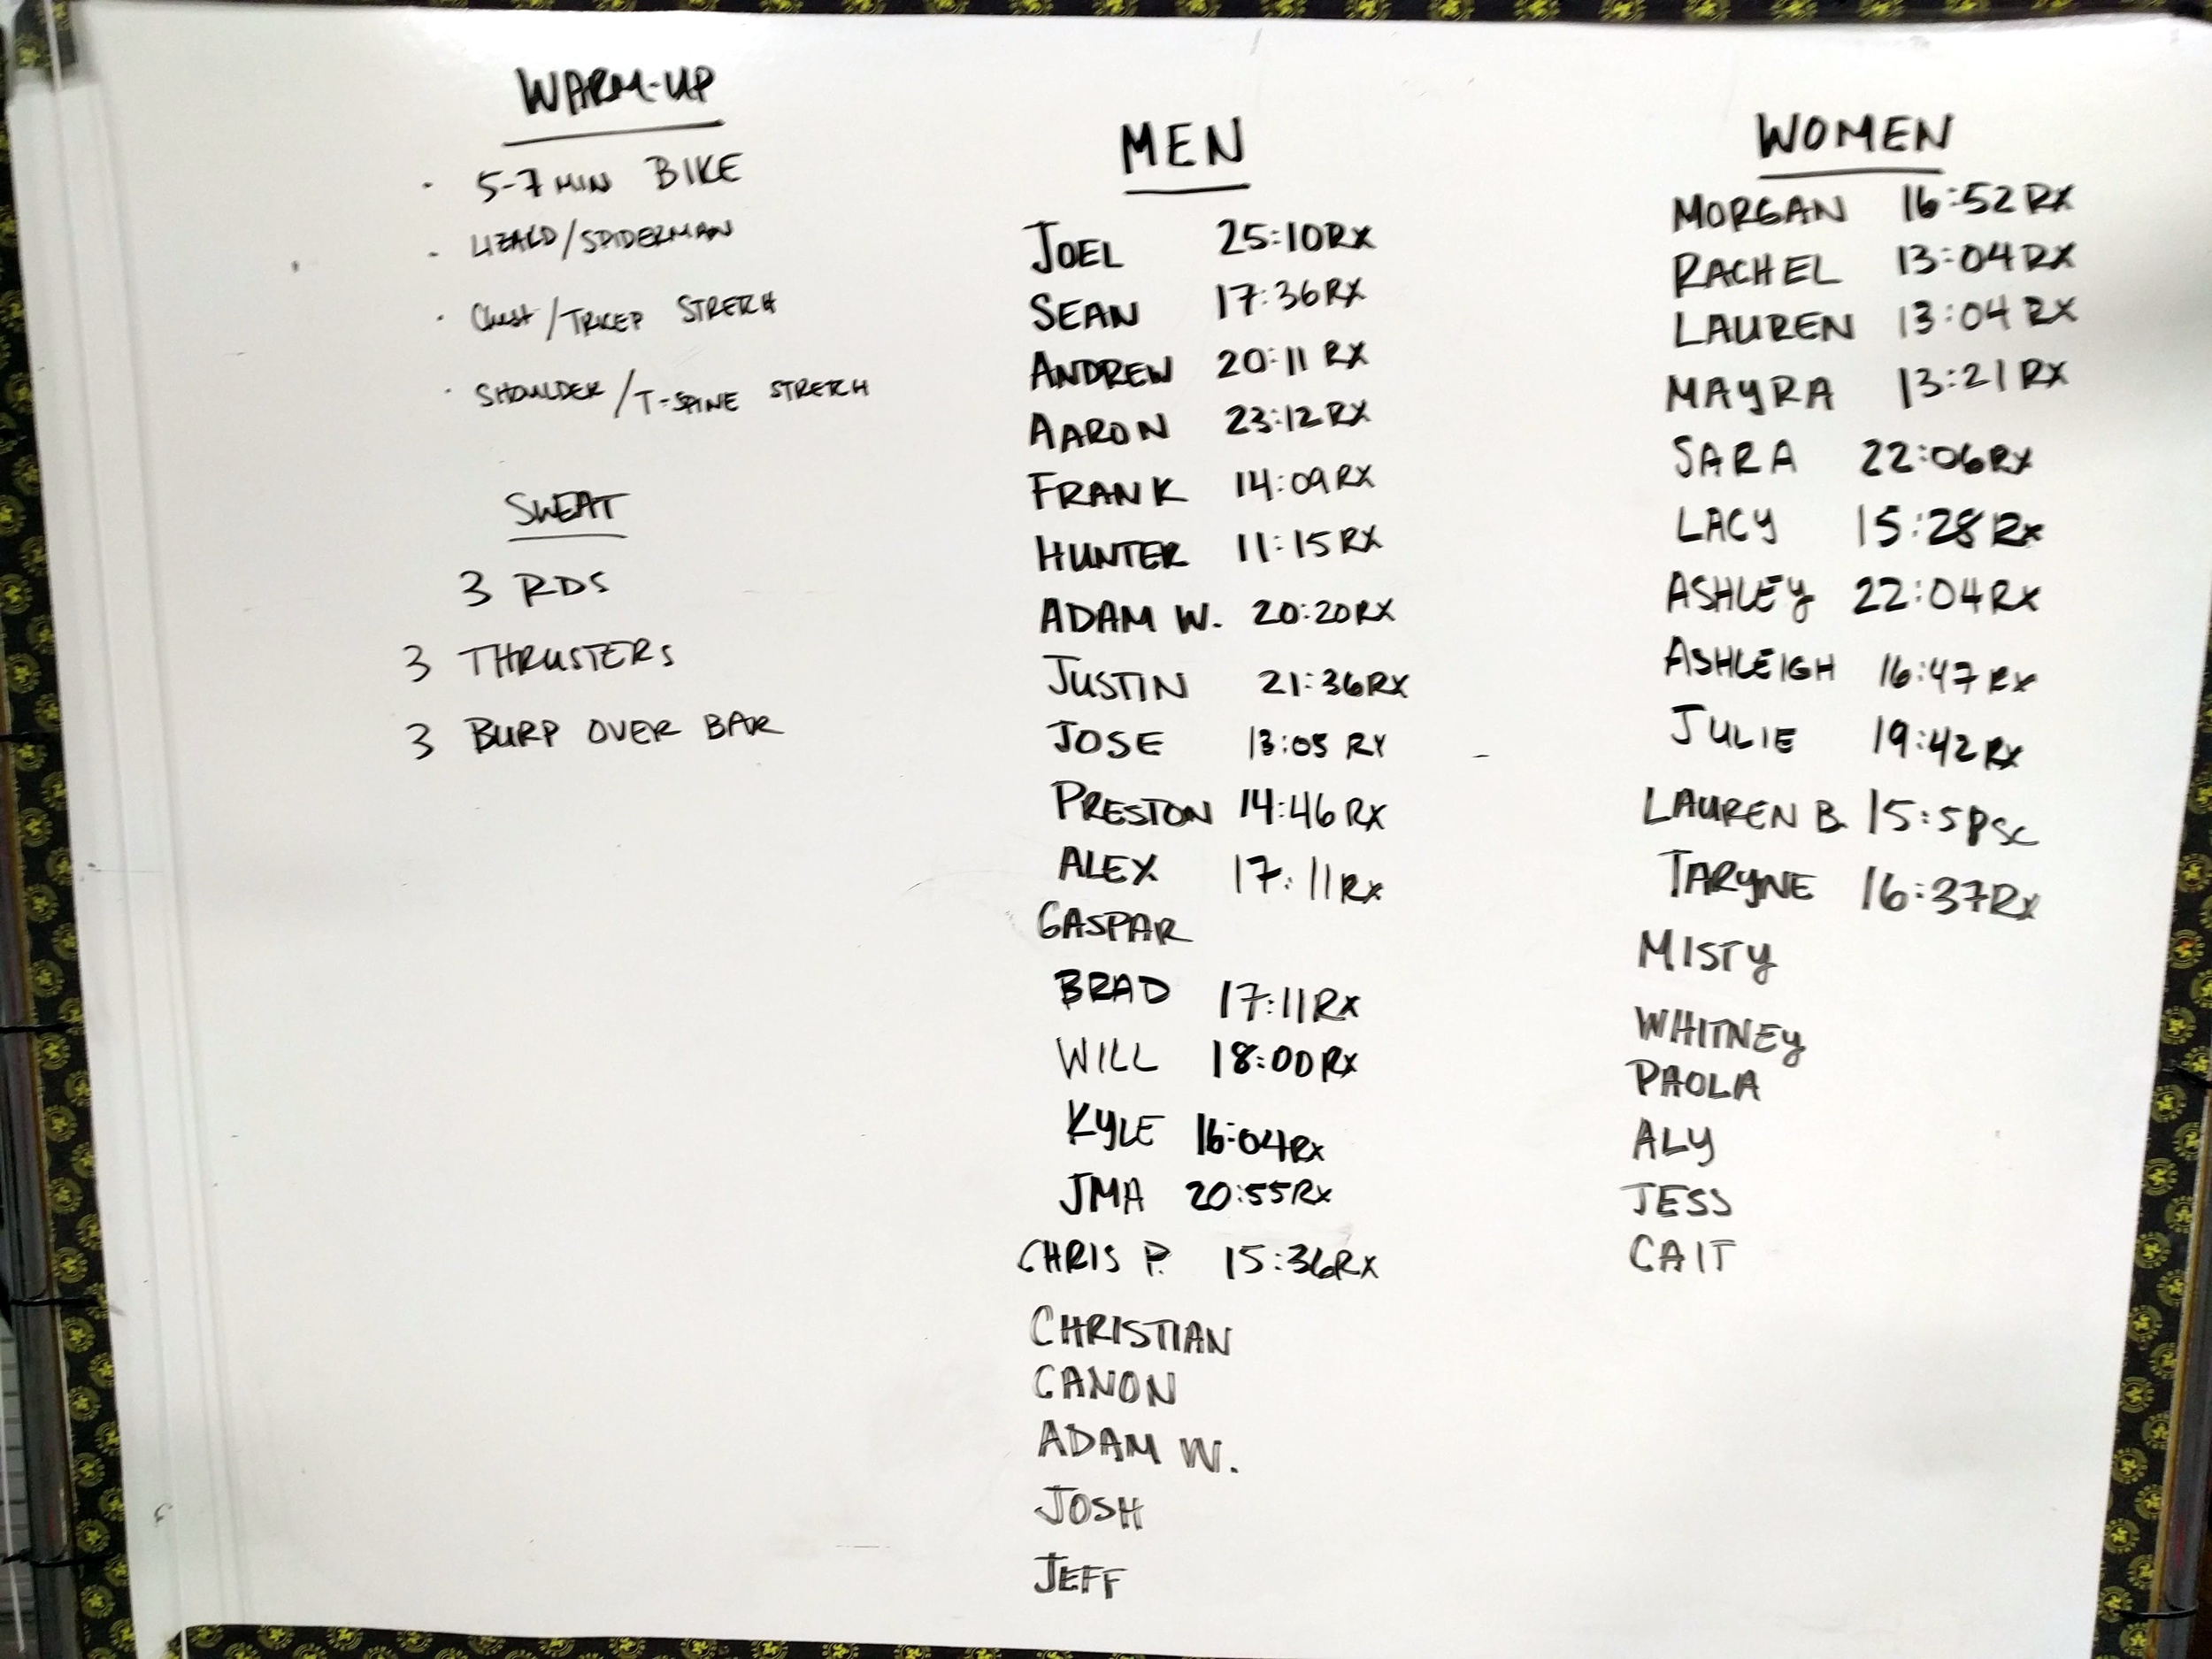 WARM-UP
· 5-7 MIN BIKE
· LIZARD/SPIDERMAN
· Chest/TRICEP STRETCH
· SHOULDER/T-SPINE STRETCH
SWEAT
3 RDS
3 THRUSTERS
3 BURP OVER BAR
MEN
JOEL 25:10RX
SEAN 17:36RX
ANDREW 20:11 RX
AARON 23:12RX
FRANK 14:09RX
HUNTER 11:15RX
ADAM W. 20:20RX
JUSTIN 21:36RX
JOSE 13:05 RX
PRESTON 14:46 RX
ALEX 17:11Rx
GASPAR
BRAD 17:11Rx
WILL 18:00Rx
KYLE 16:04Rx
JMA 20:55Rx
CHRIS P. 15:36RX
CHRISTIAN
CANON
ADAM W.
JOSH
JEFF
WOMEN
MORGAN 16:52 RX
RACHEL 13:04 RX
LAUREN 13:04 RX
MAYRA 13:21 RX
SARA 22:06Rx
LACY 15:28 Rx
ASHLEY 22:04Rx
ASHLEIGH 16:47 Rx
JULIE 19:42Rx
LAUREN B. 15:58SC
TARYNE 16:37Rx
MISTY
WHITNEY
PAOLA
ALY
JESS
CAIT